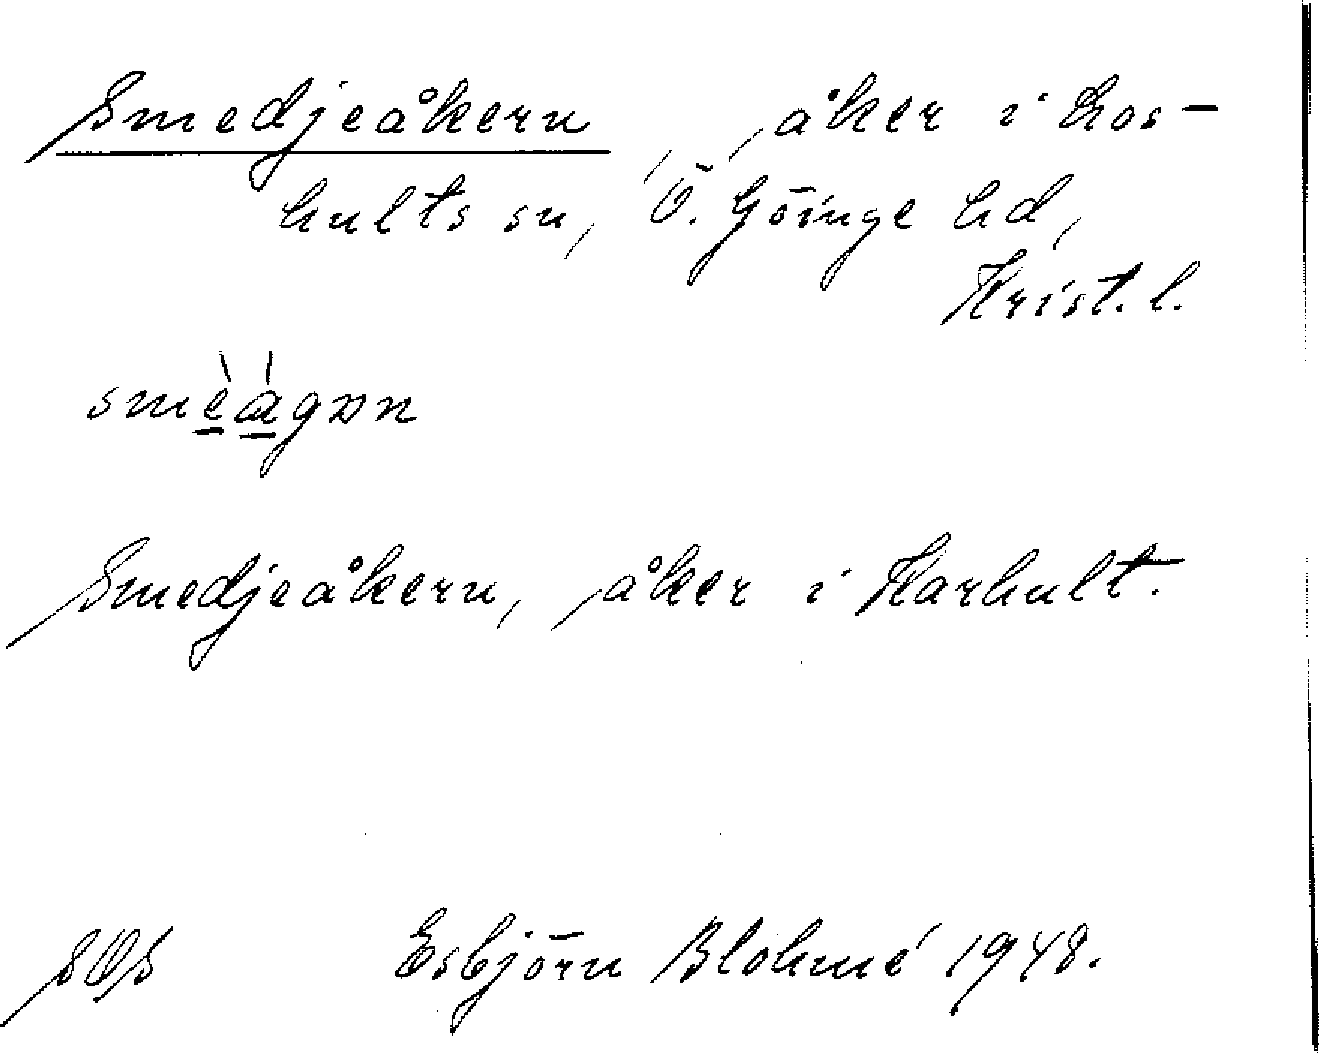 Smedjeåkern, åker i Los-
hults sn, Ö. Göinge hd,
Krist. l.
smèàgɒn
Smedjeåkern, åker i Harhult.
SOS Esbjörn Blohmé 1948.